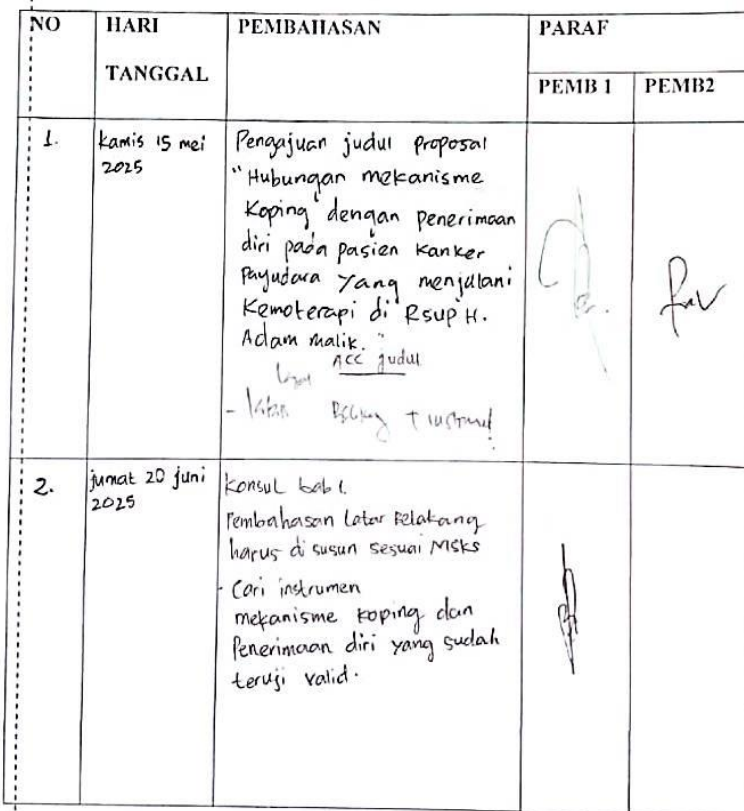 NO HARI TANGGAL PEMBAHASAN PARAF
PEMB 1 PEMB2
1. kamis 15 mei 2025
Pengajuan judul proposal
"Hubungan mekanisme
Koping dengan penerimaan
diri pada pasien kanker
Payudara yang menjalani
Kemoterapi di Rsup H.
Adam malik."
ACC judul
- latar
2. jumat 20 juni 2025
Konsul bab 1.
Pembahasan Latar Belakang
harus di susun sesuai MSKS
- Cari instrumen
mekanisme koping dan
Penerimaan diri yang sudah
teruji valid.